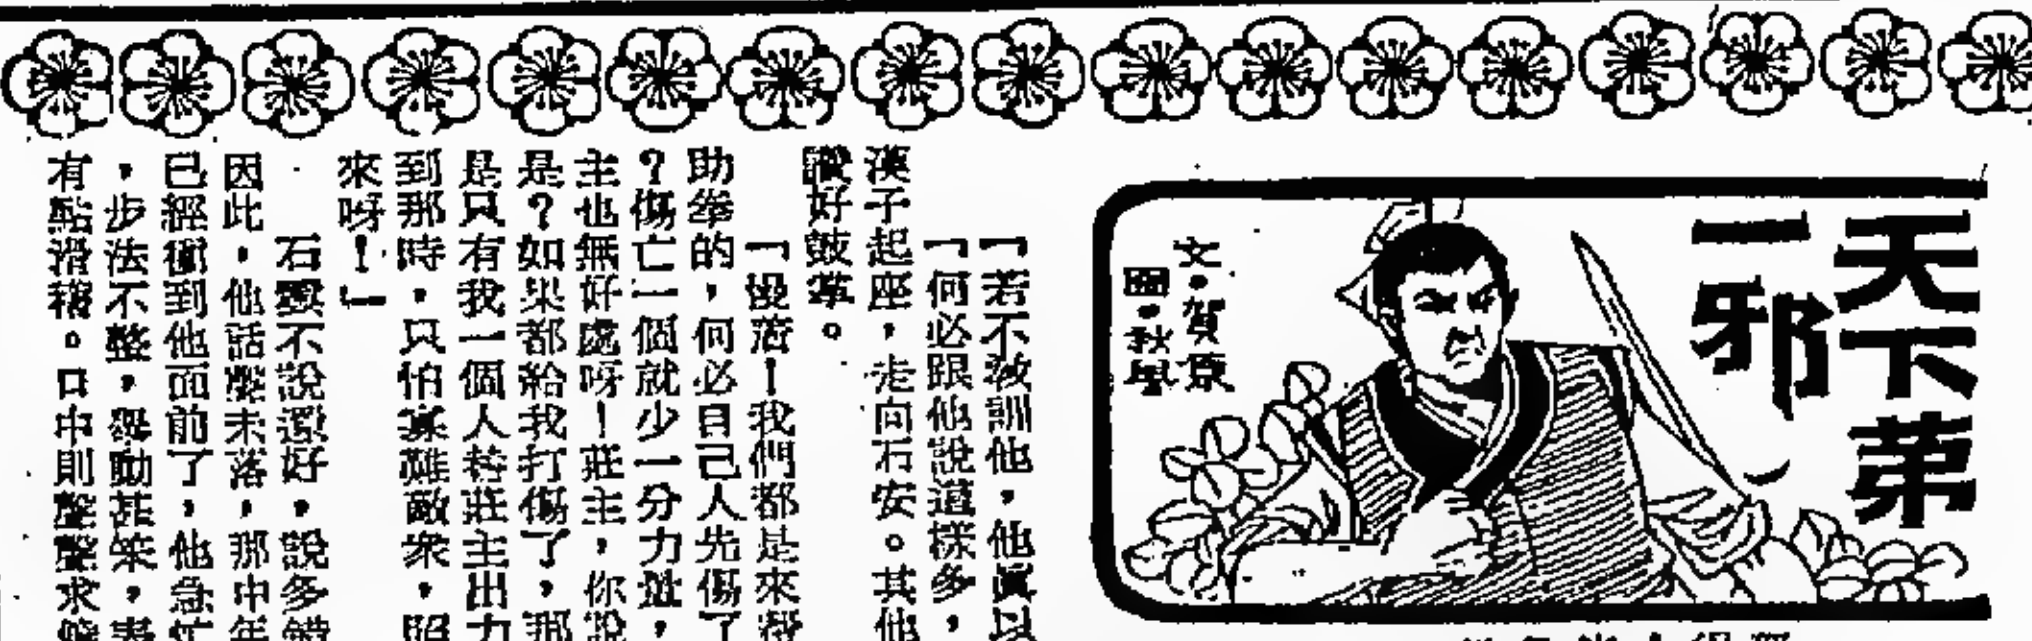 天下第
一邪
文·賀原
圖·秋學
「若不教訓他,他眞以
「何必跟他說這樣多,
漢子起座,走向石安。其他
讚好鼓掌。
「慢着!我們都是來幫
助拳的,何必自己人先傷了
?傷亡一個就少一分力量,
主也無好處呀!莊主,你說
是?如果都給我打傷了,那
是只有我一個人替莊主出力
到那時,只怕寡難敵衆,照
來呀!」
石靈不說還好,說多錯
因此,他話聲未落,那中年
已經衝到他面前了,他急忙
,步法不整,舉動甚笨,表
有點滑稽。口中則聲聲求饒